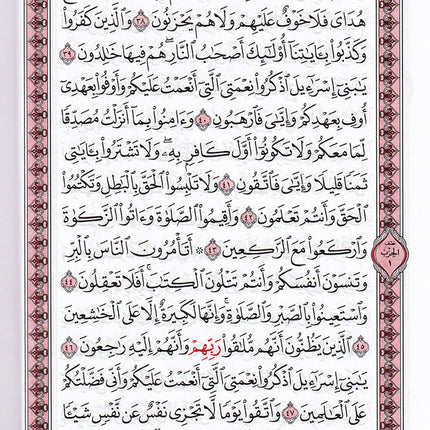 هُدَايَ فَلَا خَوْفٌ عَلَيْهِمْ وَلَا هُمْ يَحْزَنُونَ ٣٨ وَالَّذِينَ كَفَرُوا
وَكَذَّبُوا بِـَٔايَـٰتِنَا أُولَـٰٓئِكَ أَصْحَـٰبُ النَّارِ هُمْ فِيهَا خَـٰلِدُونَ ٣٩
يَـٰبَنِىٓ إِسْرَٰٓءِيلَ اذْكُرُوا نِعْمَتِىَ الَّتِىٓ أَنْعَمْتُ عَلَيْكُمْ وَأَوْفُوا بِعَهْدِىٓ
أُوفِ بِعَهْدِكُمْ وَإِيَّـٰىَ فَارْهَبُونِ ٤٠ وَءَامِنُوا بِمَآ أَنزَلْتُ مُصَدِّقًا
لِّمَا مَعَكُمْ وَلَا تَكُونُوٓا أَوَّلَ كَافِرٍ بِهِۦ وَلَا تَشْتَرُوا بِـَٔايَـٰتِى
ثَمَنًا قَلِيلًا وَإِيَّـٰىَ فَاتَّقُونِ ٤١ وَلَا تَلْبِسُوا الْحَقَّ بِالْبَـٰطِلِ وَتَكْتُمُوا
الْحَقَّ وَأَنتُمْ تَعْلَمُونَ ٤٢ وَأَقِيمُوا الصَّلَوٰةَ وَءَاتُوا الزَّكَوٰةَ
وَارْكَعُوا مَعَ الرَّٰكِعِينَ ٤٣ ۞ أَتَأْمُرُونَ النَّاسَ بِالْبِرِّ
وَتَنسَوْنَ أَنفُسَكُمْ وَأَنتُمْ تَتْلُونَ الْكِتَـٰبَ ۚ أَفَلَا تَعْقِلُونَ ٤٤
وَاسْتَعِينُوا بِالصَّبْرِ وَالصَّلَوٰةِ ۚ وَإِنَّهَا لَكَبِيرَةٌ إِلَّا عَلَى الْخَـٰشِعِينَ
٤٥ الَّذِينَ يَظُنُّونَ أَنَّهُم مُّلَـٰقُوا رَبِّهِمْ وَأَنَّهُمْ إِلَيْهِ رَٰجِعُونَ ٤٦
يَـٰبَنِىٓ إِسْرَٰٓءِيلَ اذْكُرُوا نِعْمَتِىَ الَّتِىٓ أَنْعَمْتُ عَلَيْكُمْ وَأَنِّى فَضَّلْتُكُمْ
عَلَى الْعَـٰلَمِينَ ٤٧ وَاتَّقُوا يَوْمًا لَّا تَجْزِى نَفْسٌ عَن نَّفْسٍ شَيْـًٔا
الحزب
١